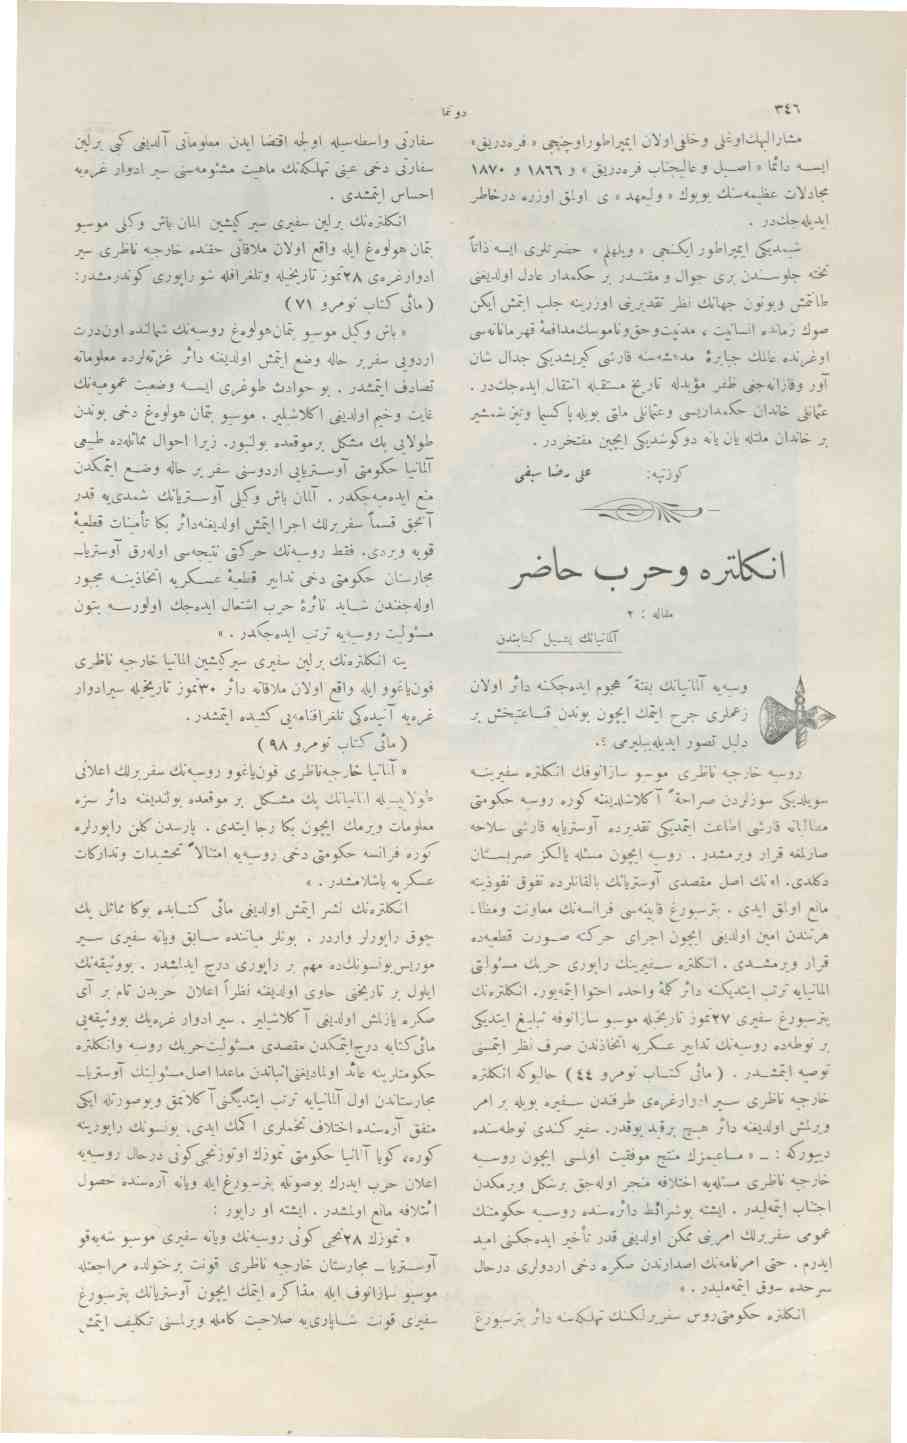 ٣٤٦
دونما
مشارالیهك‌اوغلی وخلفی‌اولان ایمپراطوراوچنجی « فره‌دریق»
ایسه دائما « اصیل و عالیجناب فره‌دریق » و ١٨٦٦ و ١٨٧٠
مجادلات عظیمه‌سنك بویوك « ولیعهد » ی اولمق اوزره درخاطر
ایدیله‌جكدر .
شیمدیكی ایمپراطور ایكنجی « ویلهلم » حضرتلری ایسه ذاتاً
تخته جلوسندن بری جوال و مقتدر بر حكمدار عادل اولدیغنی
طانتمش وبوتون جهانك نظر تقدیرینی اوزرینه جلب ایتمش ایكن
صوك زمانده انسانیت ، مدنیت‌وحق‌وناموسك‌مدافعهٔ قهرمانانه‌سی
اوغرنده عالمك جبابرهٔ مدهشه‌سنه قارشی كیریشدیكی جدال شان
آور وقارانه‌جنی ظفر مؤبدله تاریخ مستقبله انتقال ایده‌جكدر .
عثمانلی خاندان حكمداریسی وعثمانلی ملتی بویله پاكسیما وتیزشمشیر
بر خاندان ملتله یان یانه دوكوشدیكی ایچین مفتخردر .
كوزتپه: علی رضا سیفی
انكلتره وحرب حاضر
مقاله : ٢
آلمانیانك یشیل كتابندن
وسیه‌یه آلمانیانك بغتةً هجوم ایده‌جكنه دائر اولان
زعملری جرح ایتمك ایچون بوندن قناعتبخش بر
دلیل تصور ایدیله‌بیلیرمی ؟.
روسیه خارجیه ناظری موسیو سازانوفك انكلتره سفیرینه
سویلدیكی سوزلردن صراحةً آكلاشلدیغنه كوره روسیه حكومتی
مطالباته قارشی اطاعت ایتمدیكی تقدیرده آوستریایه قارشی سلاحه
صارلمغه قرار ویرمشدر . روسیه ایچون مسئله یالكز صربستان
دكلدی. اونك اصل مقصدی آوستریانك بالقانلرده تفوق نفوذینه
مانع اولمق ایدی . پترسبورغ قابینه‌سی فرانسه‌نك معاونت ومظا-
هرتندن امین اولدیغی ایچون اجرای حركته صورت قطعیه‌ده
قرار ویرمشدی . انكلتره سفیرینك راپوری حربك مسئولیتی
المانیایه ترتب ایتدیكنه دائر كلمهٔ واحده احتوا ایتمه‌یور. انكلتره‌نك
پترسبورغ سفیری ٢٧تموز تاریخیله موسیو سازانوفه تبلیغ ایتدیكی
بر نوطه‌ده روسیه‌نك تدابیر عسكریه اتخاذندن صرف نظر ایتمسنی
توصیه ایتمشدر . (مائی كتاب نومرو ٤٤) حالبوكه انكلتره
خارجیه ناظری سیر ادوارغره‌ی طرفندن سفیره بویله بر امر
ویرلمش اولدیغنه دائر هیچ برقید یوقدر. سفیر كندی نوطه‌سنده
دییوركه : ـ « مساعیمزك منتج موفقیت اولمسی ایچون روسیه
خارجیه ناظری مسئله‌یه اختلافه منجر اوله‌جق برشكل ویرمكدن
اجتناب ایتمه‌لیدر. ایشته بوشرائط دائره‌سنده روسیه حكومتنك
عمومی سفربرلك امرینی ممكن اولدیغی قدر تأخیر ایده‌جكنی امید
ایدرم . حتی امرنامه‌نك اصدارندن صكره دخی اردولری درحال
سرحده سوق ایتمه‌ملیدر . »
انكلتره حكومتی‌روس سفربرلكنك تهلكه‌سنه دائر پترسبورغ
سفارتی واسطه‌سیله اولجه اقتضا ایدن معلوماتی آلدیغی كبی برلین
سفارتی دخی عینی تهلكه‌نك ماهیت مشئومه‌سنی سیر ادوار غره‌یه
احساس ایتمشدی .
انكلتره‌نك برلین سفیری سیر كیشین المان باش وكیلی موسیو
بتمان هولوه‌غ ایله واقع اولان ملاقاتی حقنده خارجیه ناظری سیر
ادوارغره‌ی ٢٨تموز تاریخیله وتلغرافله شو راپوری كوندرمشدر:
( مائی كتاب نومرو ٧١ )
« باش وكیل موسیو بتمان‌هولوه‌غ روسیه‌نك شمالنده اون‌درت
اردویی سفربر حاله وضع ایتمش اولدیغنه دائر غزته‌لرده معلوماته
تصادف ایتمشدر . بو حوادث طوغری ایسه وضعیت عمومیه‌نك
غایت وخیم اولدیغی اكلاشیلیر . موسیو بتمان هولوه‌غ دخی بوندن
طولایی پك مشكل برموقعده بولنیور. زیرا احوال مماثله‌ده طبیعی
آلمانیا حكومتی آوستریایی اردوسنی سفر بر حاله وضع ایتمكدن
منع ایده‌میه‌جكدر . آلمان باش وكیلی آوستریانك شمدی‌یه قدر
آنجق قسماً سفربرلك اجرا ایتمش اولدیغنه‌دائر بكا تأمینات قطعیهٔ
قویه ویردی. فقط روسیه‌نك حركتی نتیجه‌سی اوله‌رق آوستریا-
مجارستان حكومتی دخی تدابیر قطعیهٔ عسكریه اتخاذینه مجبور
اوله‌جغندن شاید نائرهٔ حرب اشتعال ایده‌جك اولورسه بتون
مسئولیت روسیه‌یه ترتب ایده‌جكدر . »
ینه انكلتره‌نك برلین سفیری سیركیشین المانیا خارجیه ناظری
فون‌یاغوو ایله واقع اولان ملاقاته دائر ٣٠تموز تاریخیله سیرادوار
غره‌یه آتیده‌كی تلغرافنامه‌یی كشیده ایتمشدر .
( مائی كتاب نومرو ٩٨ )
« آلمانیا خارجیه‌ناظری فون‌یاغوو روسیه‌نك سفربرلك اعلانی
طولاییسیله المانیانك پك مشكل بر موقعده بولندیغنه دائر سزه
معلومات ویرمك ایچون بكا رجا ایتدی . پارسدن كلن راپورلره
كوره فرانسه حكومتی دخی روسیه‌یه امتثالاً تحشیدات وتداركات
عسكریه باشلامشدر . »
انكلتره‌نك نشر ایتمش اولدیغی مائی كتابده بوكا مماثل پك
چوق راپورلر واردر . بونلر میاننده سابق ویانه سفیری سیر
موریس‌بونسونك‌ده مهم بر راپوری درج ایدلمشدر . بووثیقه‌نك
ایلول بر تاریخنی حاوی اولدیغنه نظراً اعلان حربدن تام بر آی
صكره یازلمش اولدیغی آكلاشیلیر . سیر ادوار غره‌ینك بووثیقه‌یی
مائی‌كتابه درج‌ایتمكدن مقصدی مسئولیت‌حربك روسیه وانكلتره
حكومتلرینه عائد اولمادیغنی‌اثباتدن ماعدا اصل‌مسئولیتك آوستریا-
مجارستاندن اول آلمانیایه ترتب ایتدیگنی‌آكلاتمق وبوصورتله ایكی
متفق آره‌سنده اختلاف تخملری اكمك ایدی. بونسونك راپورینه
كوره، كویا آلمانیا حكومتی تموزك اوتوزنجی‌كونی درحال روسیه‌یه
اعلان حرب ایدرك بوصورتله پترسبورغ ایله ویانه آره‌سنده حصول
ائتلافه مانع اولمشدر . ایشته او راپور :
« تموزك ٢٨نجی كونی روسیه‌نك ویانه سفیری موسیو شه‌به‌قو
آوستریا ـ مجارستان خارجیه ناظری قونت برختولده مراجعتله
موسیو سازانوف ایله مذاكره ایتمك ایچون آوستریانك پترسبورغ
سفیری قونت شاپاری‌یه صلاحیت كامله ویرلمسنی تكلیف ایتمش